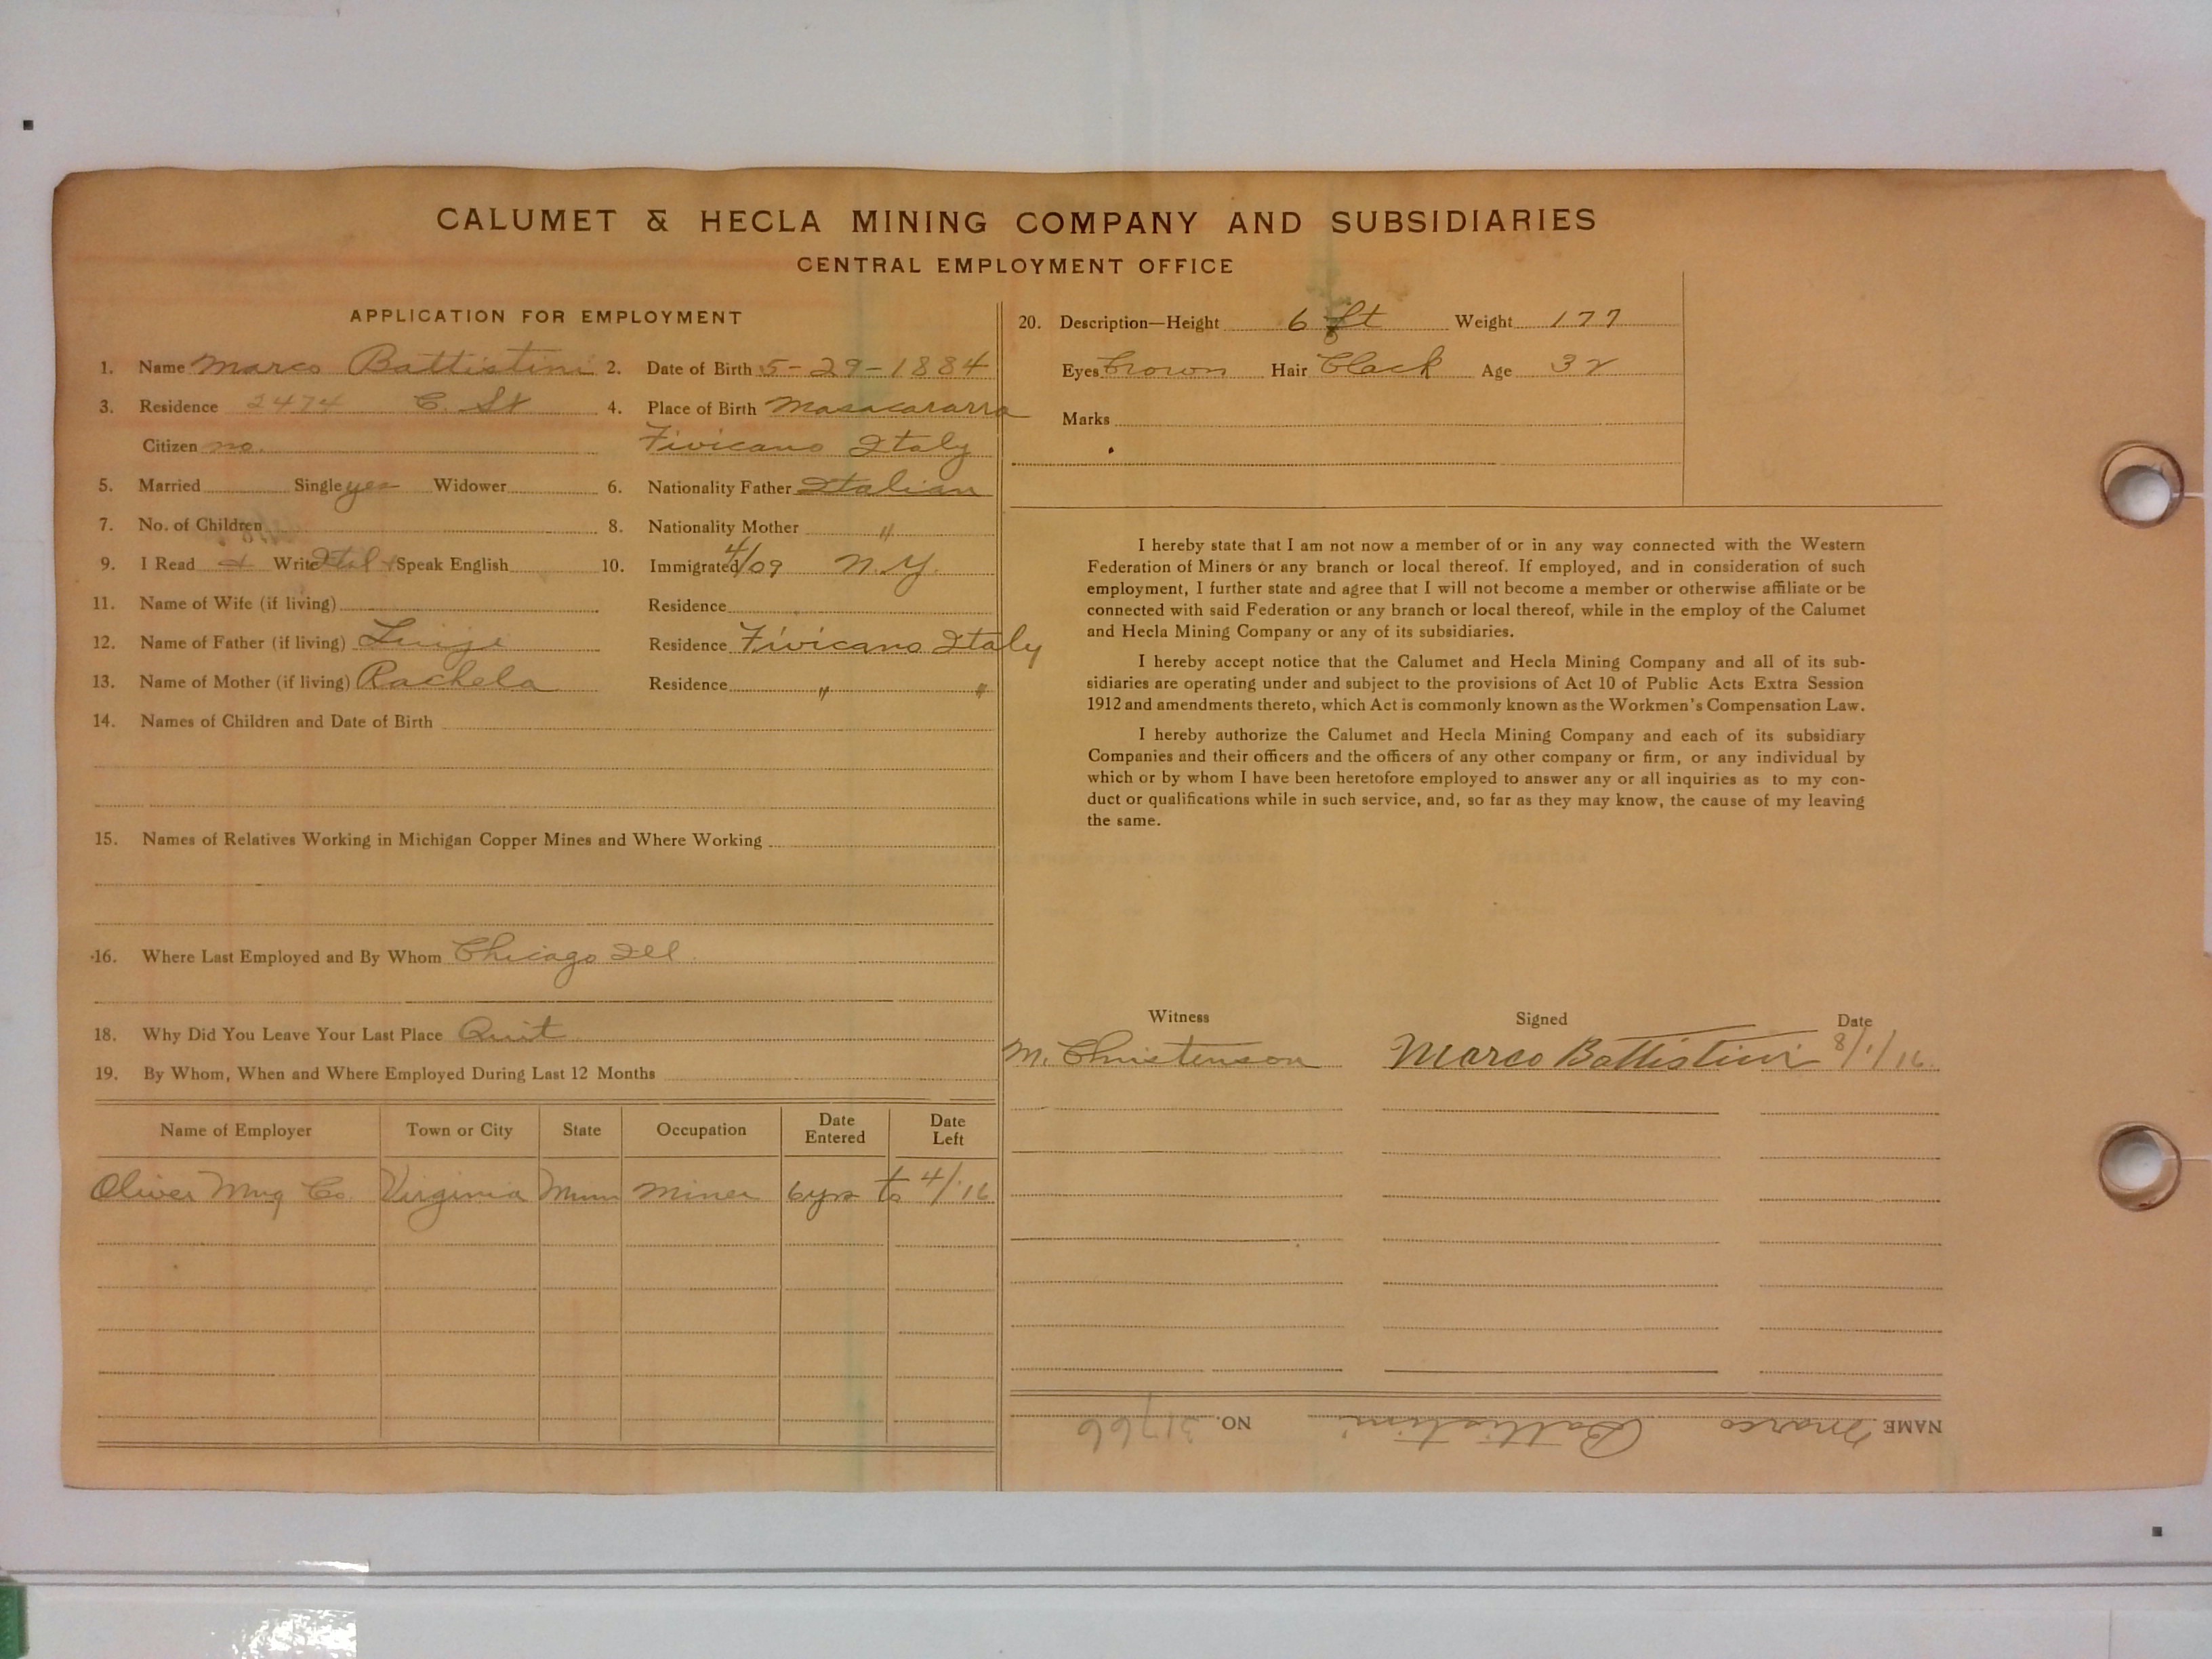 CALUMET & HECLA MINING COMPANY AND SUBSIDIARIES
CENTRAL EMPLOYMENT OFFICE
APPLICATION FOR EMPLOYMENT
1. Name Marco Battistini 2. Date of Birth 5-29-1884
3. Residence 2474 C. St 4. Place of Birth Masacararra
Citizen no. Fivicano Italy
5. Married Single yes Widower 6. Nationality Father Italian
7. No. of Children 8. Nationality Mother "
9. I Read & Write Ital & Speak English 10. Immigrated 4/09 N.Y.
11. Name of Wife (if living) Residence
12. Name of Father (if living) Luige Residence Fivicano Italy
13. Name of Mother (if living) Rachela Residence " "
14. Names of Children and Date of Birth
15. Names of Relatives Working in Michigan Copper Mines and Where Working
16. Where Last Employed and By Whom Chicago Ill.
18. Why Did You Leave Your Last Place Quit
19. By Whom, When and Where Employed During Last 12 Months
Name of Employer Town or City State Occupation Date Entered Date Left
Oliver Mng Co. Virginia Minn Miner 6yrs to 4/'16
20. Description—Height 6 ft Weight 177
Eyes brown Hair Black Age 32
Marks
I hereby state that I am not now a member of or in any way connected with the Western
Federation of Miners or any branch or local thereof. If employed, and in consideration of such
employment, I further state and agree that I will not become a member or otherwise affiliate or be
connected with said Federation or any branch or local thereof, while in the employ of the Calumet
and Hecla Mining Company or any of its subsidiaries.
I hereby accept notice that the Calumet and Hecla Mining Company and all of its sub-
sidiaries are operating under and subject to the provisions of Act 10 of Public Acts Extra Session
1912 and amendments thereto, which Act is commonly known as the Workmen's Compensation Law.
I hereby authorize the Calumet and Hecla Mining Company and each of its subsidiary
Companies and their officers and the officers of any other company or firm, or any individual by
which or by whom I have been heretofore employed to answer any or all inquiries as to my con-
duct or qualifications while in such service, and, so far as they may know, the cause of my leaving
the same.
Witness Signed Date
M. Christenson Marco Battistini 8/1/16.
NAME Marco Battistini NO. 31766